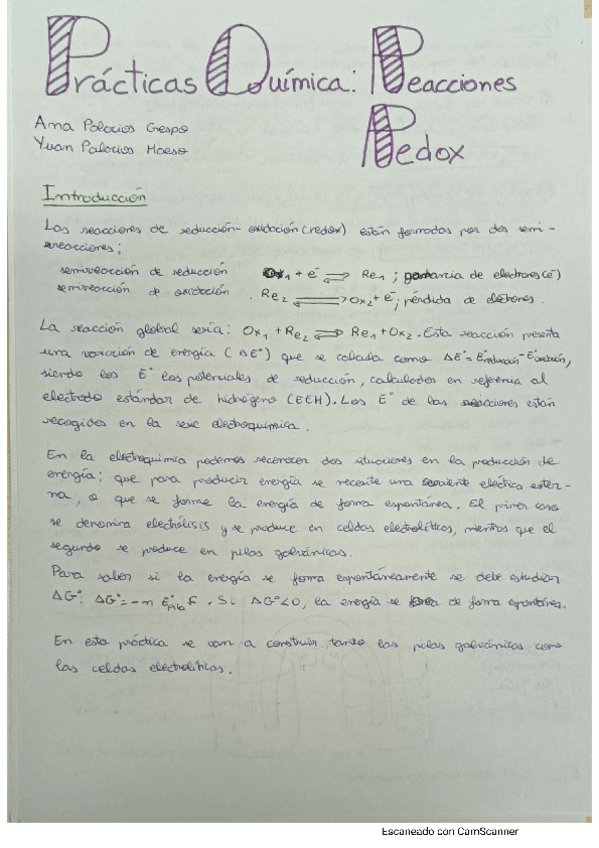 Prácticas Química: Reacciones
Redox
Ana Palacios Crespo
Yuan Palacios Maeso
Introducción
Las reacciones de reducción-oxidación (redox) están formadas por dos semi-
rreacciones;
semirreacción de reducción Ox₁ + e⁻ ⇌ Re₁ ; ganancia de electrones (e⁻)
semirreacción de oxidación . Re₂ ⇌ Ox₂ + e⁻; pérdida de electrones.
La reacción global sería: Ox₁ + Re₂ ⇌ Re₁ + Ox₂. Esta reacción presenta
una variación de energía (ΔE°) que se calcula como ΔE° = E°reducción - E°oxidación,
siendo los E° los potenciales de reducción, calculados en referencia al
electrodo estándar de hidrógeno (EEH). Los E° de las reacciones están
recogidos en la serie electroquímica.
En la electroquímica podemos reconocer dos situaciones en la producción de
energía: que para producir energía se necesite una corriente eléctrica exter-
na, o que se forme la energía de forma espontánea. El primer caso
se denomina electrólisis y se produce en celdas electrolíticas, mientras que el
segundo se produce en pilas galvánicas.
Para saber si la energía se forma espontáneamente se debe estudiar
ΔG°: ΔG° = -n E°pila F. Si ΔG° < 0, la energía se da de forma espontánea.
En esta práctica se van a construir tanto las pilas galvánicas como
las celdas electrolíticas.
Escaneado con CamScanner